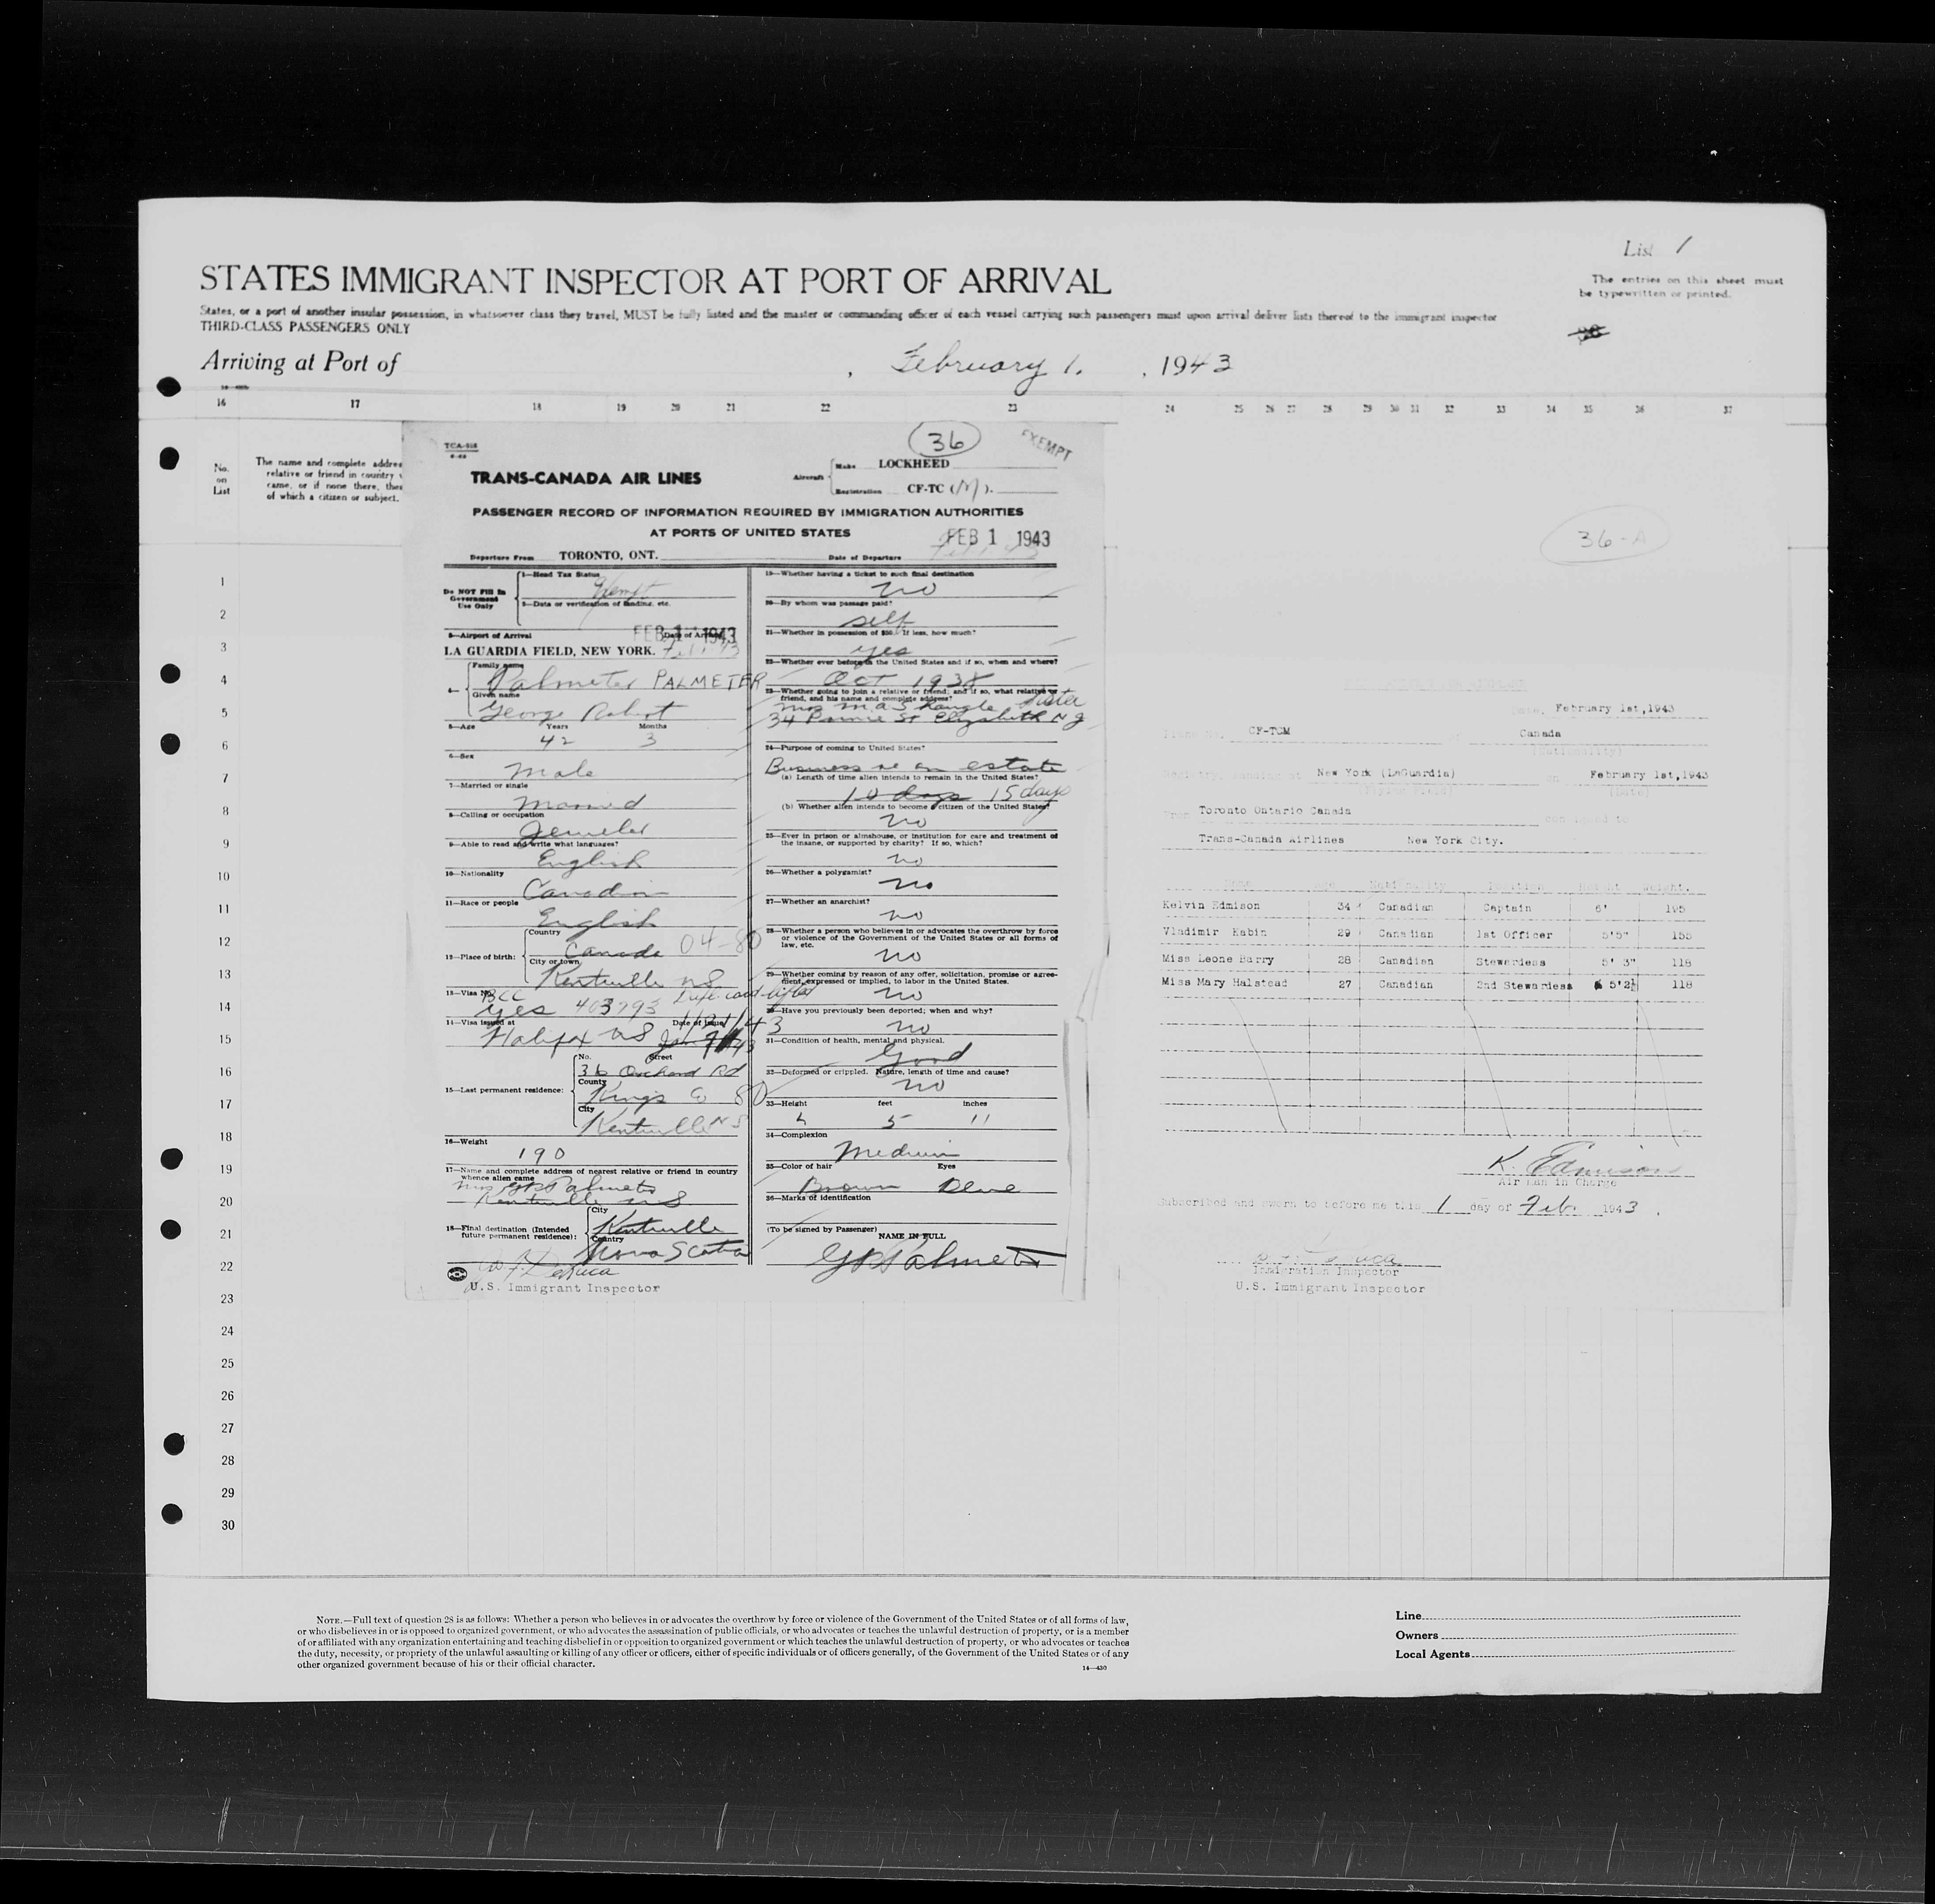 List 1
STATES IMMIGRANT INSPECTOR AT PORT OF ARRIVAL
The entries on this sheet must
be typewritten or printed.
States, or a port of another insular possession, in whatsoever class they travel, MUST be fully listed and the master or commanding officer of each vessel carrying such passengers must upon arrival deliver lists thereof to the immigrant inspector
THIRD-CLASS PASSENGERS ONLY
Arriving at Port of , February 1. , 1943
16 17 18 19 20 21 22 23 24 25 26 27 28 29 30 31 32 33 34 35 36 37
No.
on
List
The name and complete addre
relative or friend in country
came, or if none there, the
of which a citizen or subject.
1
2
3
4
5
6
7
8
9
10
11
12
13
14
15
16
17
18
19
20
21
22
23
24
25
26
27
28
29
30
TCA-518
36
EXEMPT
TRANS-CANADA AIR LINES
Aircraft Make LOCKHEED
Registration CF-TC (M).
PASSENGER RECORD OF INFORMATION REQUIRED BY IMMIGRATION AUTHORITIES
AT PORTS OF UNITED STATES
FEB 1 1943
Departure From TORONTO, ONT. Date of Departure
Do NOT Fill In
Government
Use Only
1—Head Tax Status
Exempt
2—Data or verification of landing, etc.
3—Airport of Arrival Date of Arrival
FEB 1 1943
LA GUARDIA FIELD, NEW YORK. Feb 1 43
4— Family name
Palmeter PALMETER
Given name
George Robert
5—Age Years Months
42 3
6—Sex
Male
7—Married or single
Married
8—Calling or occupation
Jeweler
9—Able to read and write what languages?
English
10—Nationality
Canadian
11—Race or people
English
12—Place of birth: Country
Canada 04-80
City or town
Kentville NS
13—Visa No.
BCC
yes 403793
14—Visa issued at Date of Issue
Halifax NS
1/21/43
15—Last permanent residence: No. Street
36 Orchard Rd
County
Kings Co 80
City
Kentville NS
16—Weight
190
17—Name and complete address of nearest relative or friend in country
whence alien came
Mrs GR Palmeter
Kentville NS
18—Final destination (Intended
future permanent residence): City
Kentville
Country
Nova Scotia
U.S. Immigrant Inspector
19—Whether having a ticket to such final destination
no
20—By whom was passage paid?
self
21—Whether in possession of $50. If less, how much?
yes
22—Whether ever before in the United States and if so, when and where?
Oct 1938
23—Whether going to join a relative or friend; and if so, what relative or
friend, and his name and complete address?
Sister
Elizabeth NJ
24—Purpose of coming to United States?
Business re an estate
(a) Length of time alien intends to remain in the United States?
10 days 15 days
(b) Whether alien intends to become citizen of the United States?
no
25—Ever in prison or almshouse, or institution for care and treatment of
the insane, or supported by charity? If so, which?
no
26—Whether a polygamist?
no
27—Whether an anarchist?
no
28—Whether a person who believes in or advocates the overthrow by force
or violence of the Government of the United States or all forms of
law, etc.
no
29—Whether coming by reason of any offer, solicitation, promise or agree-
ment, expressed or implied, to labor in the United States.
no
30—Have you previously been deported; when and why?
no
31—Condition of health, mental and physical.
Good
32—Deformed or crippled. Nature, length of time and cause?
no
33—Height feet inches
5 11
34—Complexion
Medium
35—Color of hair Eyes
Brown Blue
36—Marks of identification
(To be signed by Passenger)
NAME IN FULL
GR Palmeter
36-A
Date, February 1st,1943
CF-TCM Canada
(Nationality)
New York (LaGuardia) on February 1st,1943
From Toronto Ontario Canada
Trans-Canada Airlines New York City.
Name Age Nationality Position Height Weight.
Kelvin Edmison 34 Canadian Captain 6' 195
Vladimir Habin 29 Canadian 1st Officer 5'5" 155
Miss Leone Barry 28 Canadian Stewardess 5' 3" 118
Miss Mary Halstead 27 Canadian 2nd Stewardess 5'2½ 118
K. Edmison
Air Man in Charge
Subscribed and sworn to before me this 1 day of Feb. 1943.
Immigration Inspector
U.S. Immigrant Inspector
NOTE.—Full text of question 28 is as follows: Whether a person who believes in or advocates the overthrow by force or violence of the Government of the United States or of all forms of law,
or who disbelieves in or is opposed to organized government, or who advocates the assassination of public officials, or who advocates or teaches the unlawful destruction of property, or is a member
of or affiliated with any organization entertaining and teaching disbelief in or opposition to organized government or which teaches the unlawful destruction of property, or who advocates or teaches
the duty, necessity, or propriety of the unlawful assaulting or killing of any officer or officers, either of specific individuals or of officers generally, of the Government of the United States or of any
other organized government because of his or their official character.
14—430
Line
Owners
Local Agents